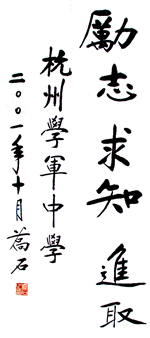 勵志求知進取
杭州學軍中學
二〇〇一年十月 蒿石